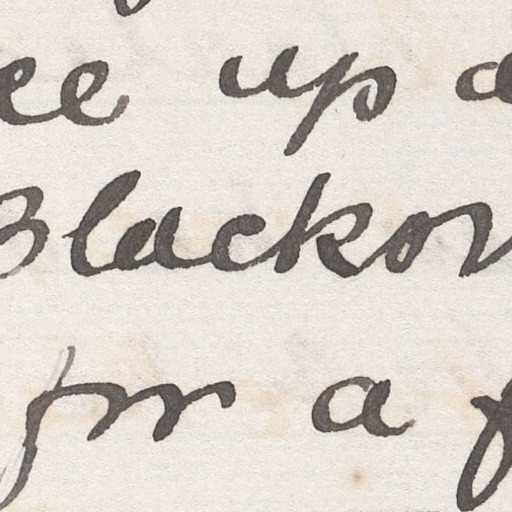 ee up a
Blackor
for a f